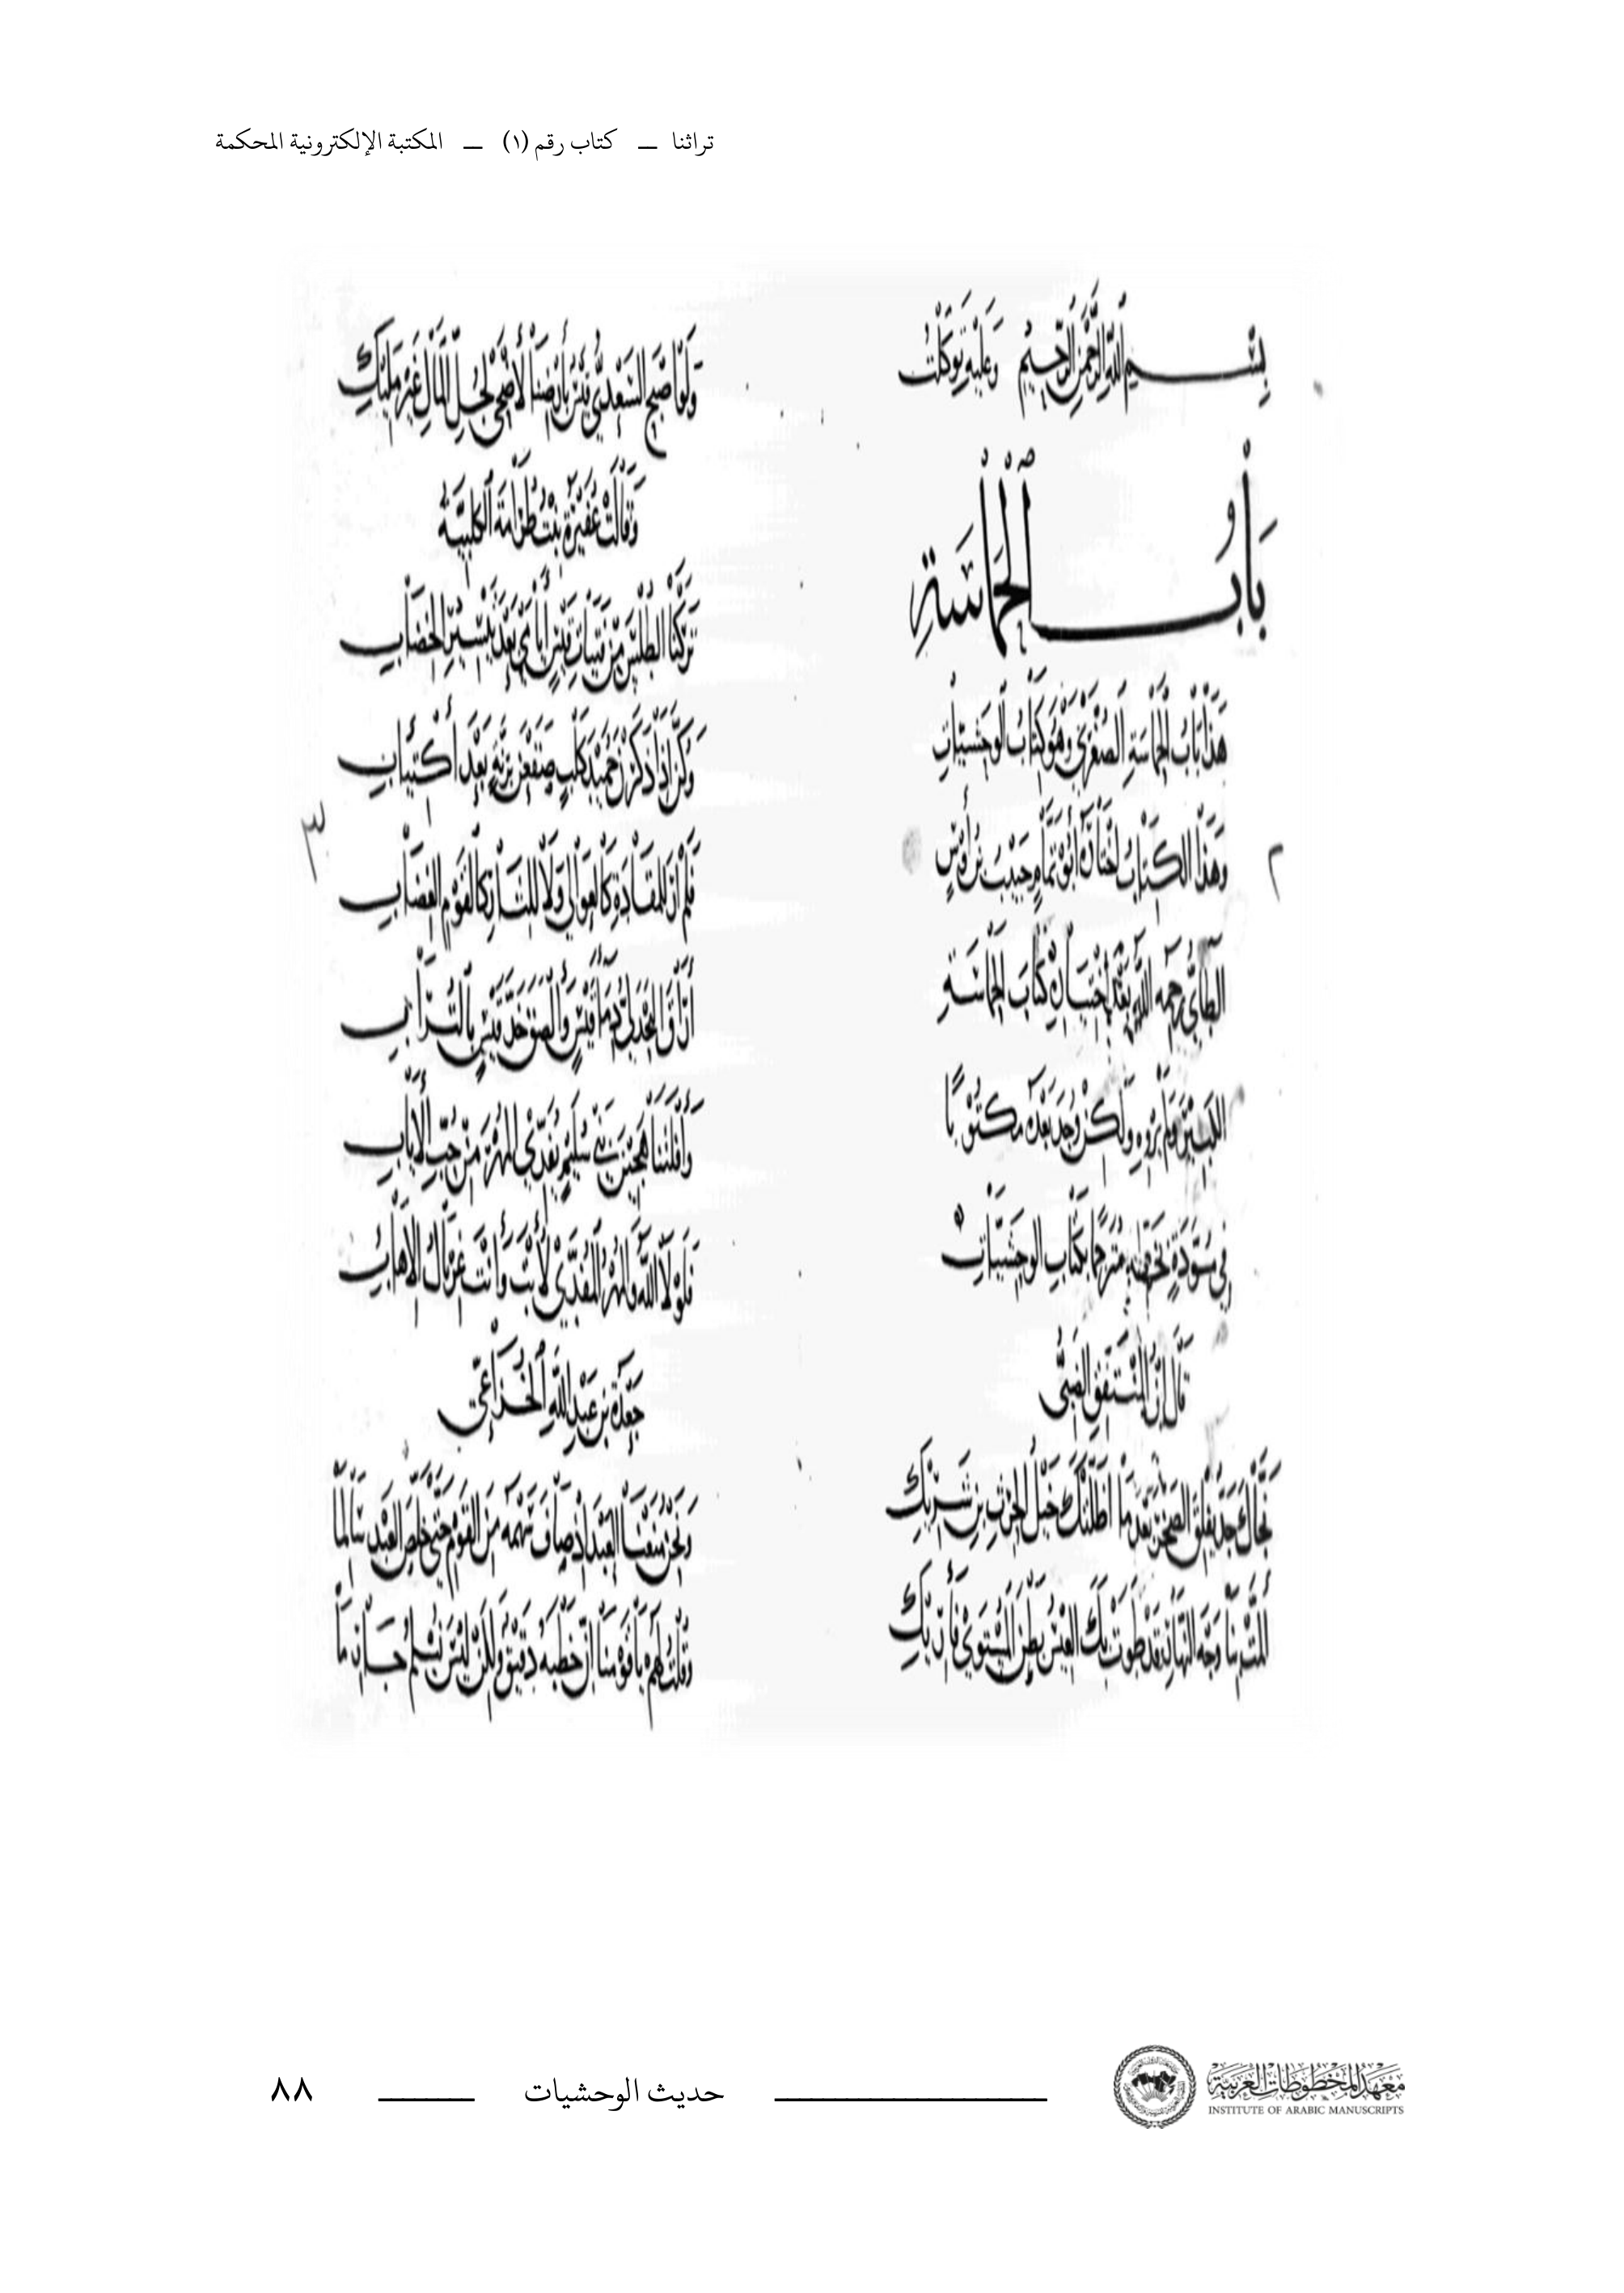 تراثنا — كتاب رقم (١) — المكتبة الإلكترونية المحكمة
بسم الله الرحمن الرحيم وعليه توكلت
باب الحماسة
هذا باب الحماسة الصغرى وهو كتاب الوحشيات
وهذا الكتاب اختاره أبو تمام حبيب بن أوس
الطائي رحمه الله بعد اختياره كتاب الحماسة
الكبير ولم يروه ولكن وجد بعده مكتوبا
في مسودة بخطه مترجما بكتاب الوحشيات
قال ابن المنتفق الضبي
نجاك جد يفلق الصخر بعد ما أظلتك خيل الحرث بن شريك
ألمت بنا وجه النهار قد طوت بك العيس بطن المستوي فأريك
ولو أصبح السعدي قيس بأرضنا لأضحى لجل المال غير مليك
وقالت عفيرة بنت طرامة الكلبية
تركنا الطلس من فتيات قيس أيامى بعد تيسير الخضاب
وكن إذا ذكرن حميد كلب صقعن برنة بعد اكتئاب
فلم أر للمقادة كالعوالي ولا للثأر كالقوم الغضاب
أراق البحدلي دماء قيس وألصق خد قيس بالتراب
وأفلتنا هجين بني سليم يفدي المهر من حب الإياب
فلولا الله والمهر المفدى لأبت وأنت غربال الإهاب
جعدة بن عبد الله الخزاعي
ونحن منعنا العبد إذ صاف سهمه من القوم حتى خلص العبد سالما
وقلت لهم يا قومنا إن خطبه دقيق ولكن ليس نسلم جارما
٢
٣
معهد المخطوطات العربية
INSTITUTE OF ARABIC MANUSCRIPTS
حديث الوحشيات
٨٨